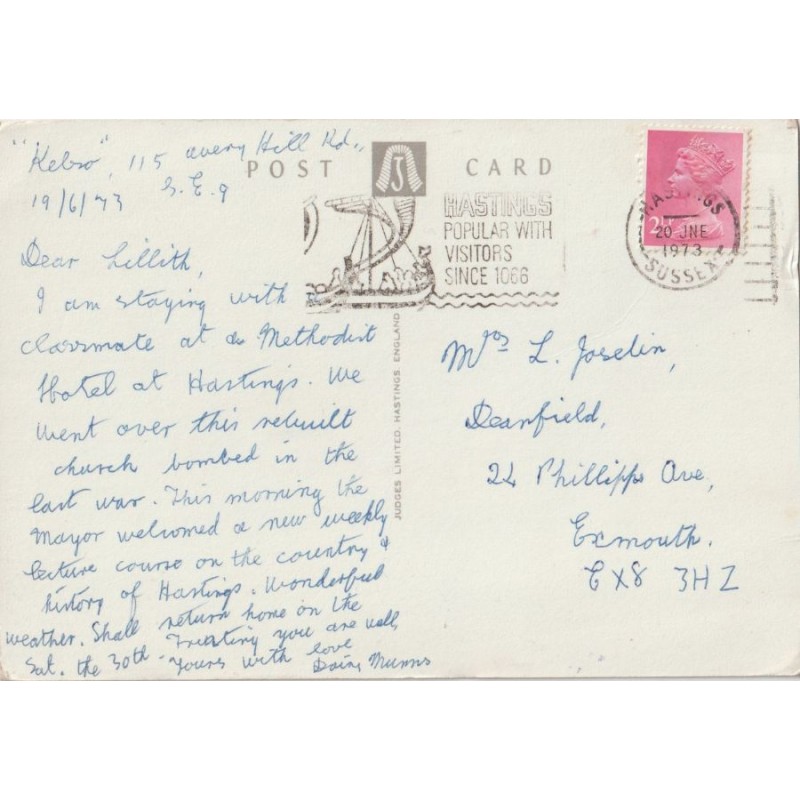 "Kelso", 115 Avery Hill Rd.,
S.E.9
19/6/73
POST CARD
Dear Lillith,
I am staying with a
classmate at a Methodist
Hotel at Hastings. We
went over this rebuilt
church bombed in the
last war. This morning the
Mayor welcomed a new weekly
lecture course on the country &
history of Hastings. Wonderful
weather. Shall return home on the
Sat. the 30th. Trusting you are well,
Yours with love
Munns
JUDGES LIMITED, HASTINGS, ENGLAND
HASTINGS
POPULAR WITH
VISITORS
SINCE 1066
HASTINGS
20 JNE
1973
SUSSEX
2½
Mrs L. Joselin,
Deanfield,
22 Phillipps Ave,
Exmouth.
EX8 3HZ